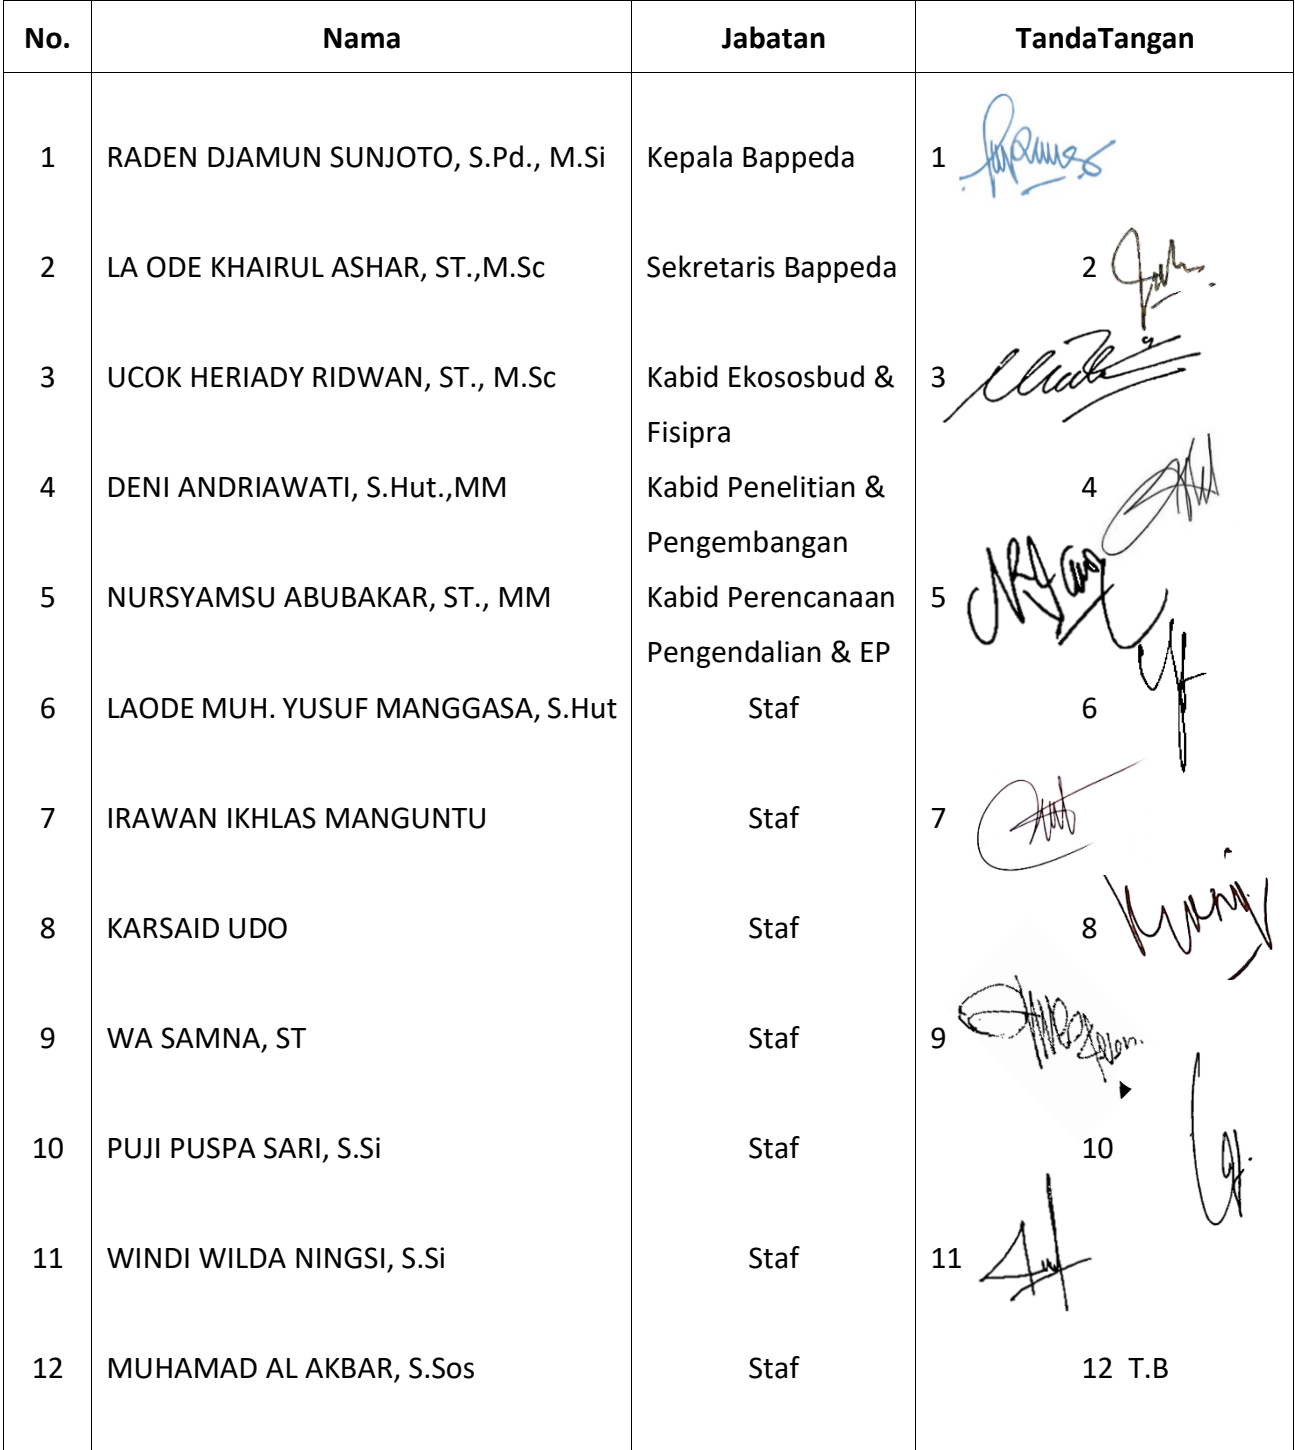 No. Nama Jabatan TandaTangan
1 RADEN DJAMUN SUNJOTO, S.Pd., M.Si Kepala Bappeda 1
2 LA ODE KHAIRUL ASHAR, ST.,M.Sc Sekretaris Bappeda 2
3 UCOK HERIADY RIDWAN, ST., M.Sc Kabid Ekososbud & 3
Fisipra
4 DENI ANDRIAWATI, S.Hut.,MM Kabid Penelitian & 4
Pengembangan
5 NURSYAMSU ABUBAKAR, ST., MM Kabid Perencanaan 5
Pengendalian & EP
6 LAODE MUH. YUSUF MANGGASA, S.Hut Staf 6
7 IRAWAN IKHLAS MANGUNTU Staf 7
8 KARSAID UDO Staf 8
9 WA SAMNA, ST Staf 9
10 PUJI PUSPA SARI, S.Si Staf 10
11 WINDI WILDA NINGSI, S.Si Staf 11
12 MUHAMAD AL AKBAR, S.Sos Staf 12 T.B